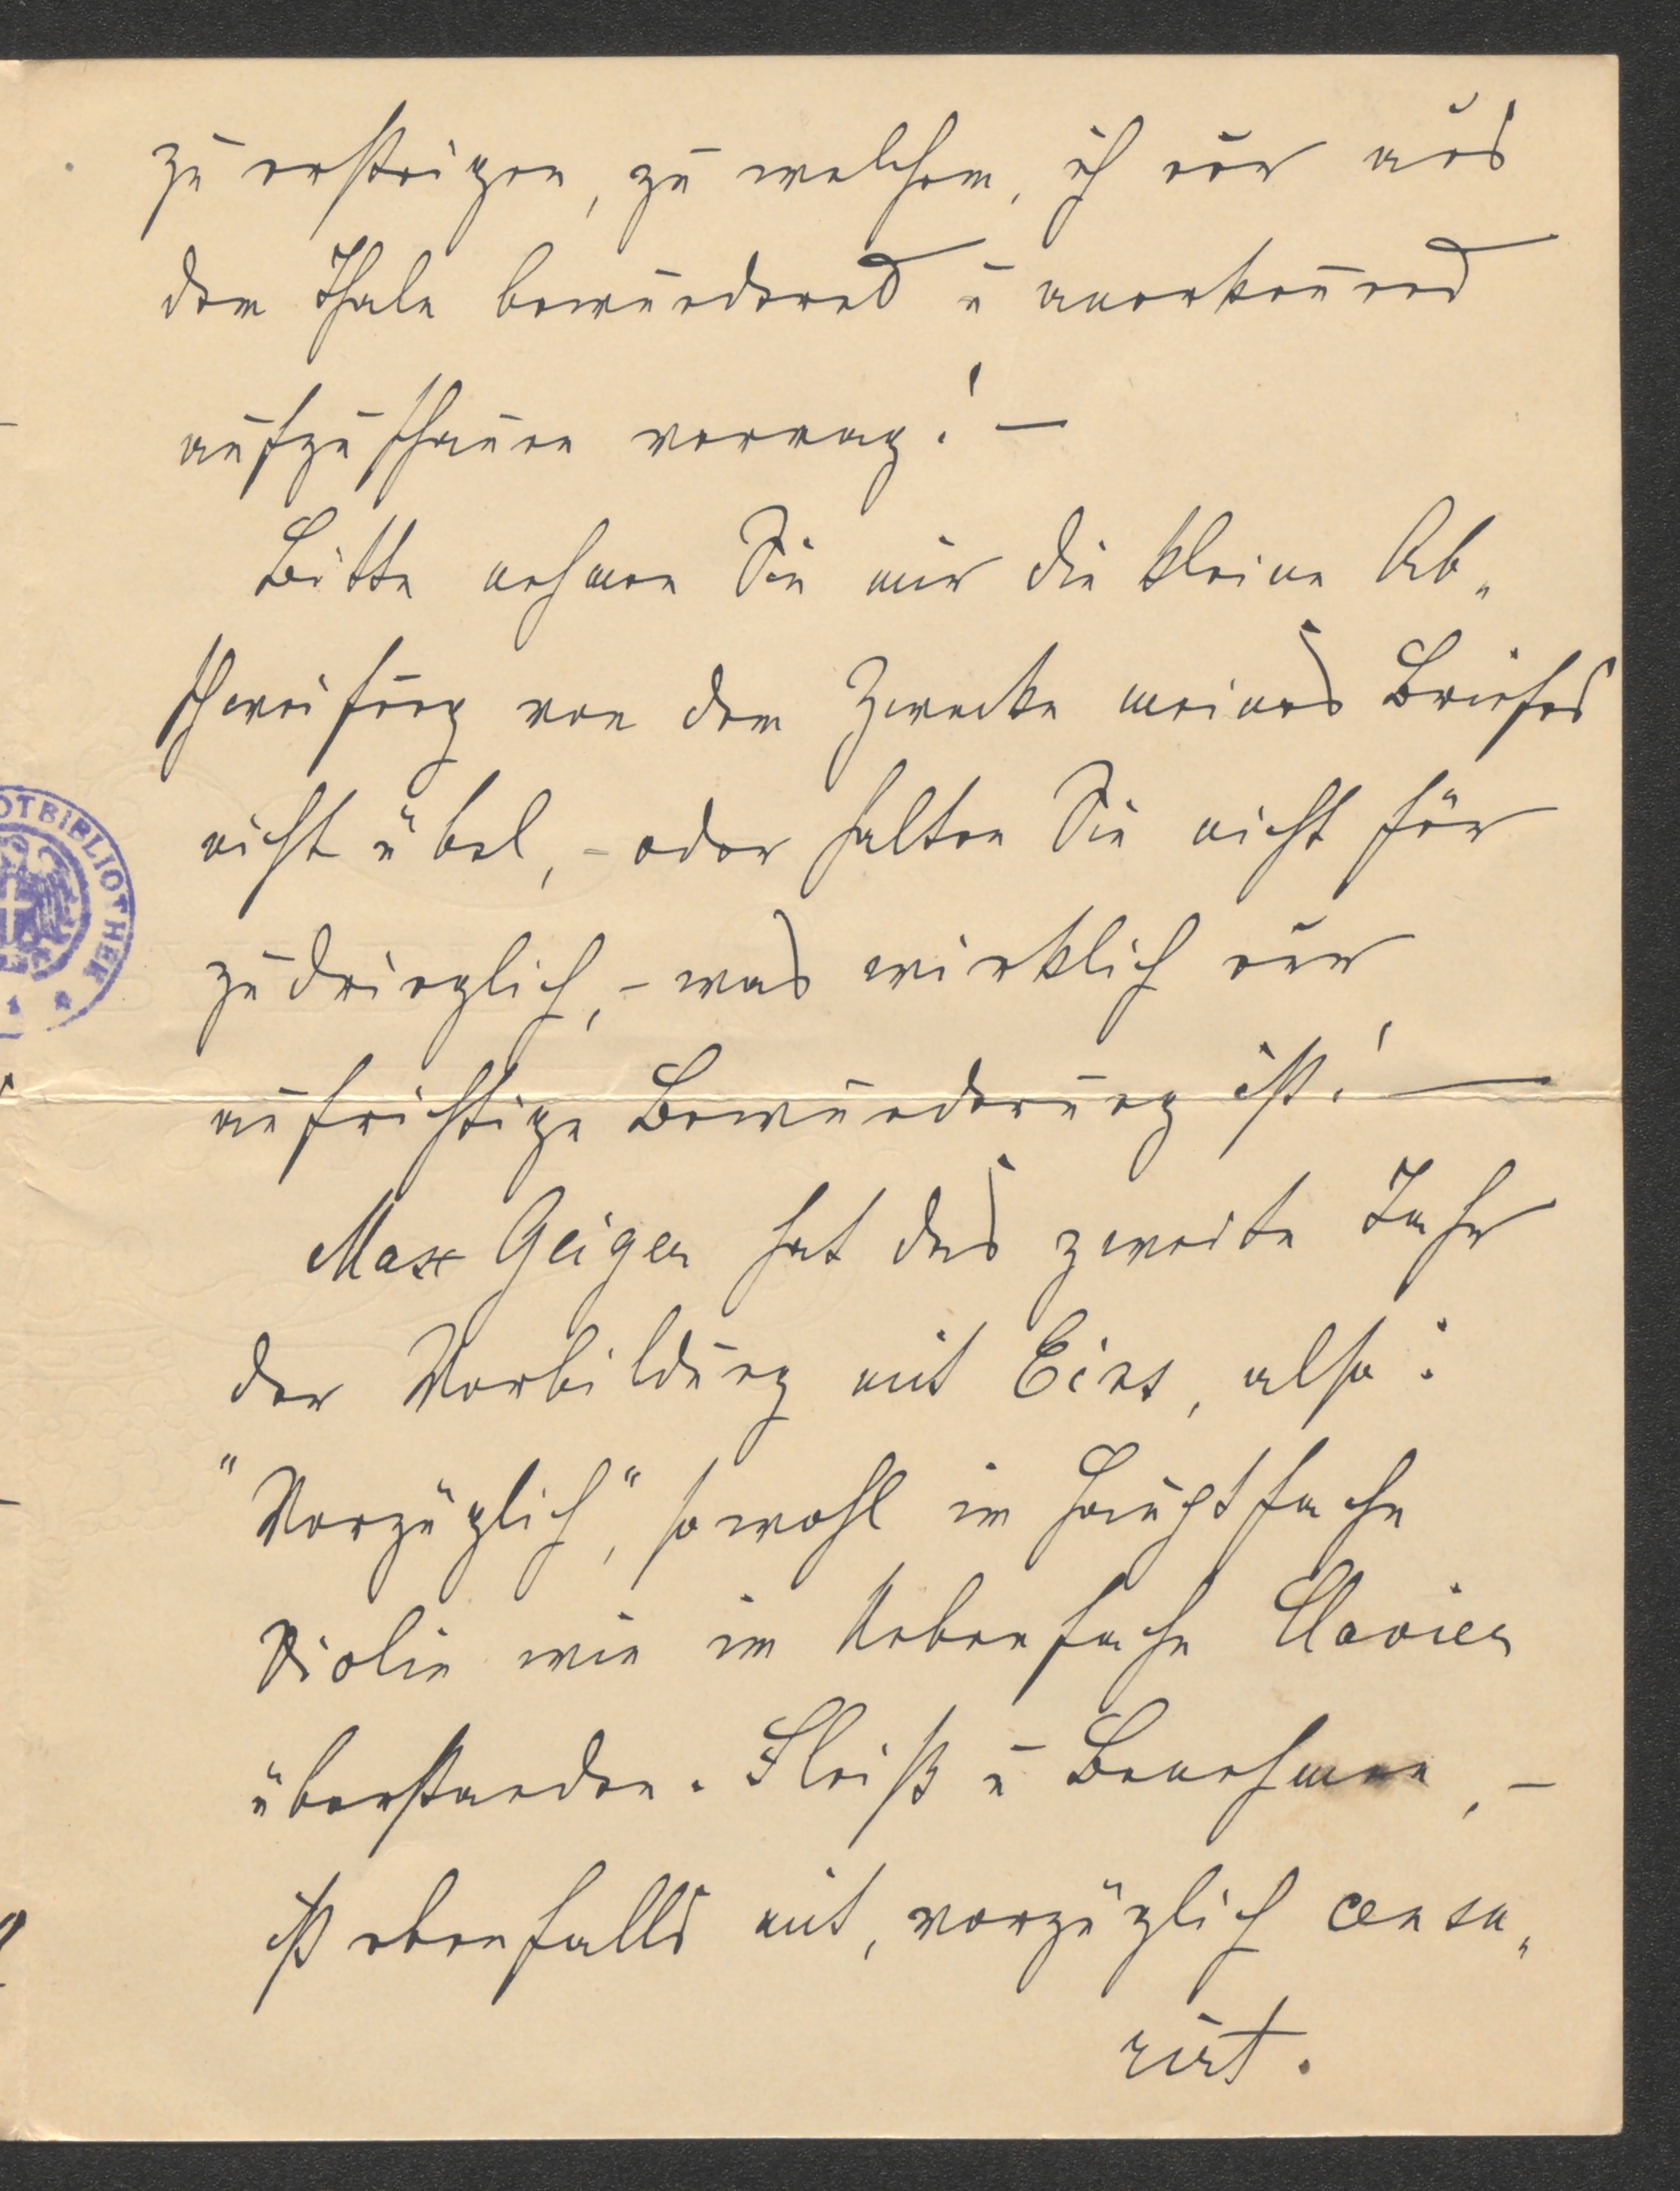 zu ersteigen, zu welchem, ich nur aus
dem Thale bewundernd u anerkennend
aufzuschauen vermag! —
Bitte nehmen Sie mir die kleine Ab„
schweifung von dem Zwecke meines Briefes
nicht übel, – oder halten Sie nicht für
zudringlich, – was wirklich nur
aufrichtige Bewunderung ist! —
Max Geiger hat das zweite Jahr
der Vorbildung mit Eins, also:
"Vorzüglich", sowohl im Hauptfache
Violin wie im Nebenfache Clavier
überstanden. Fleiß u Benehmen, –
ist ebenfalls mit, vorzüglich censu„
rirt.
OTBIBLIOTHEK